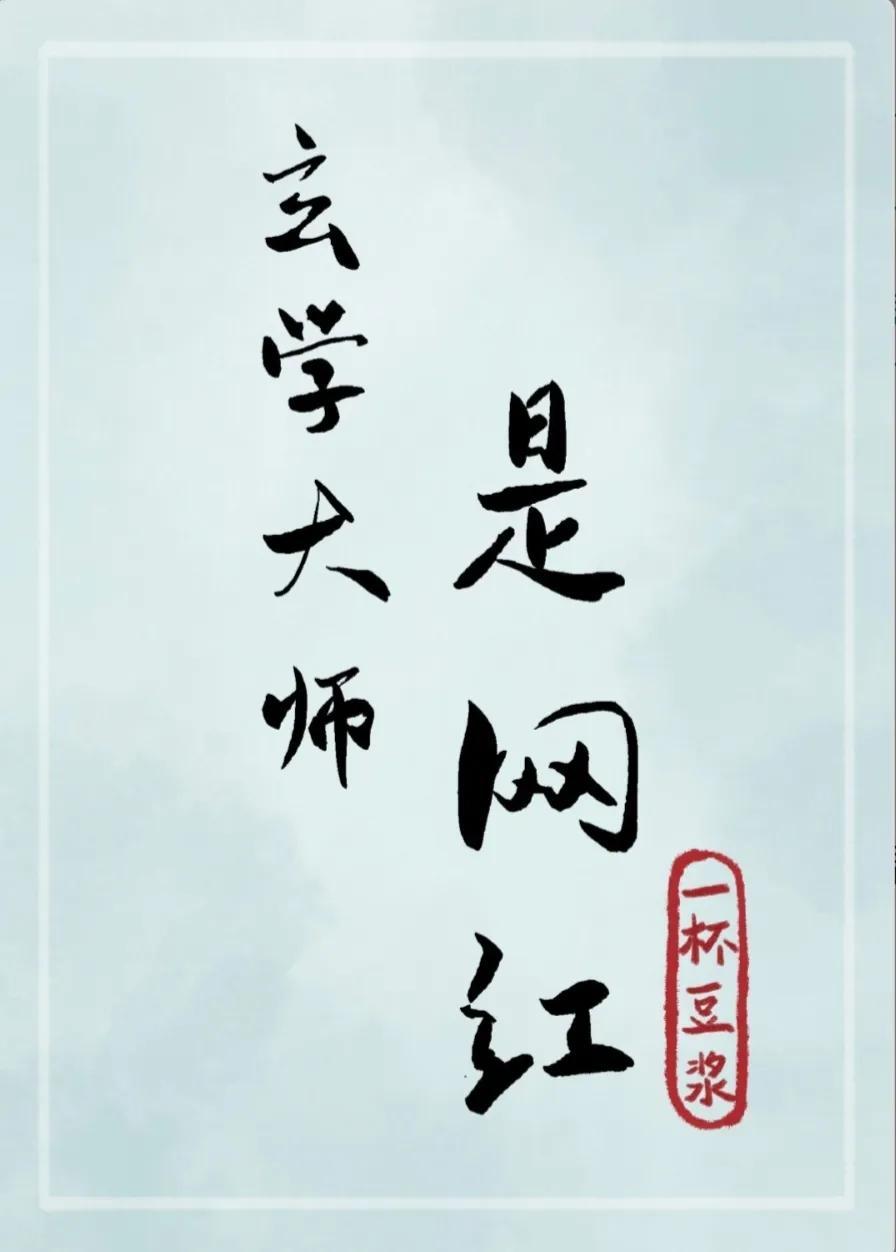 玄学大师
是网红
一杯豆浆